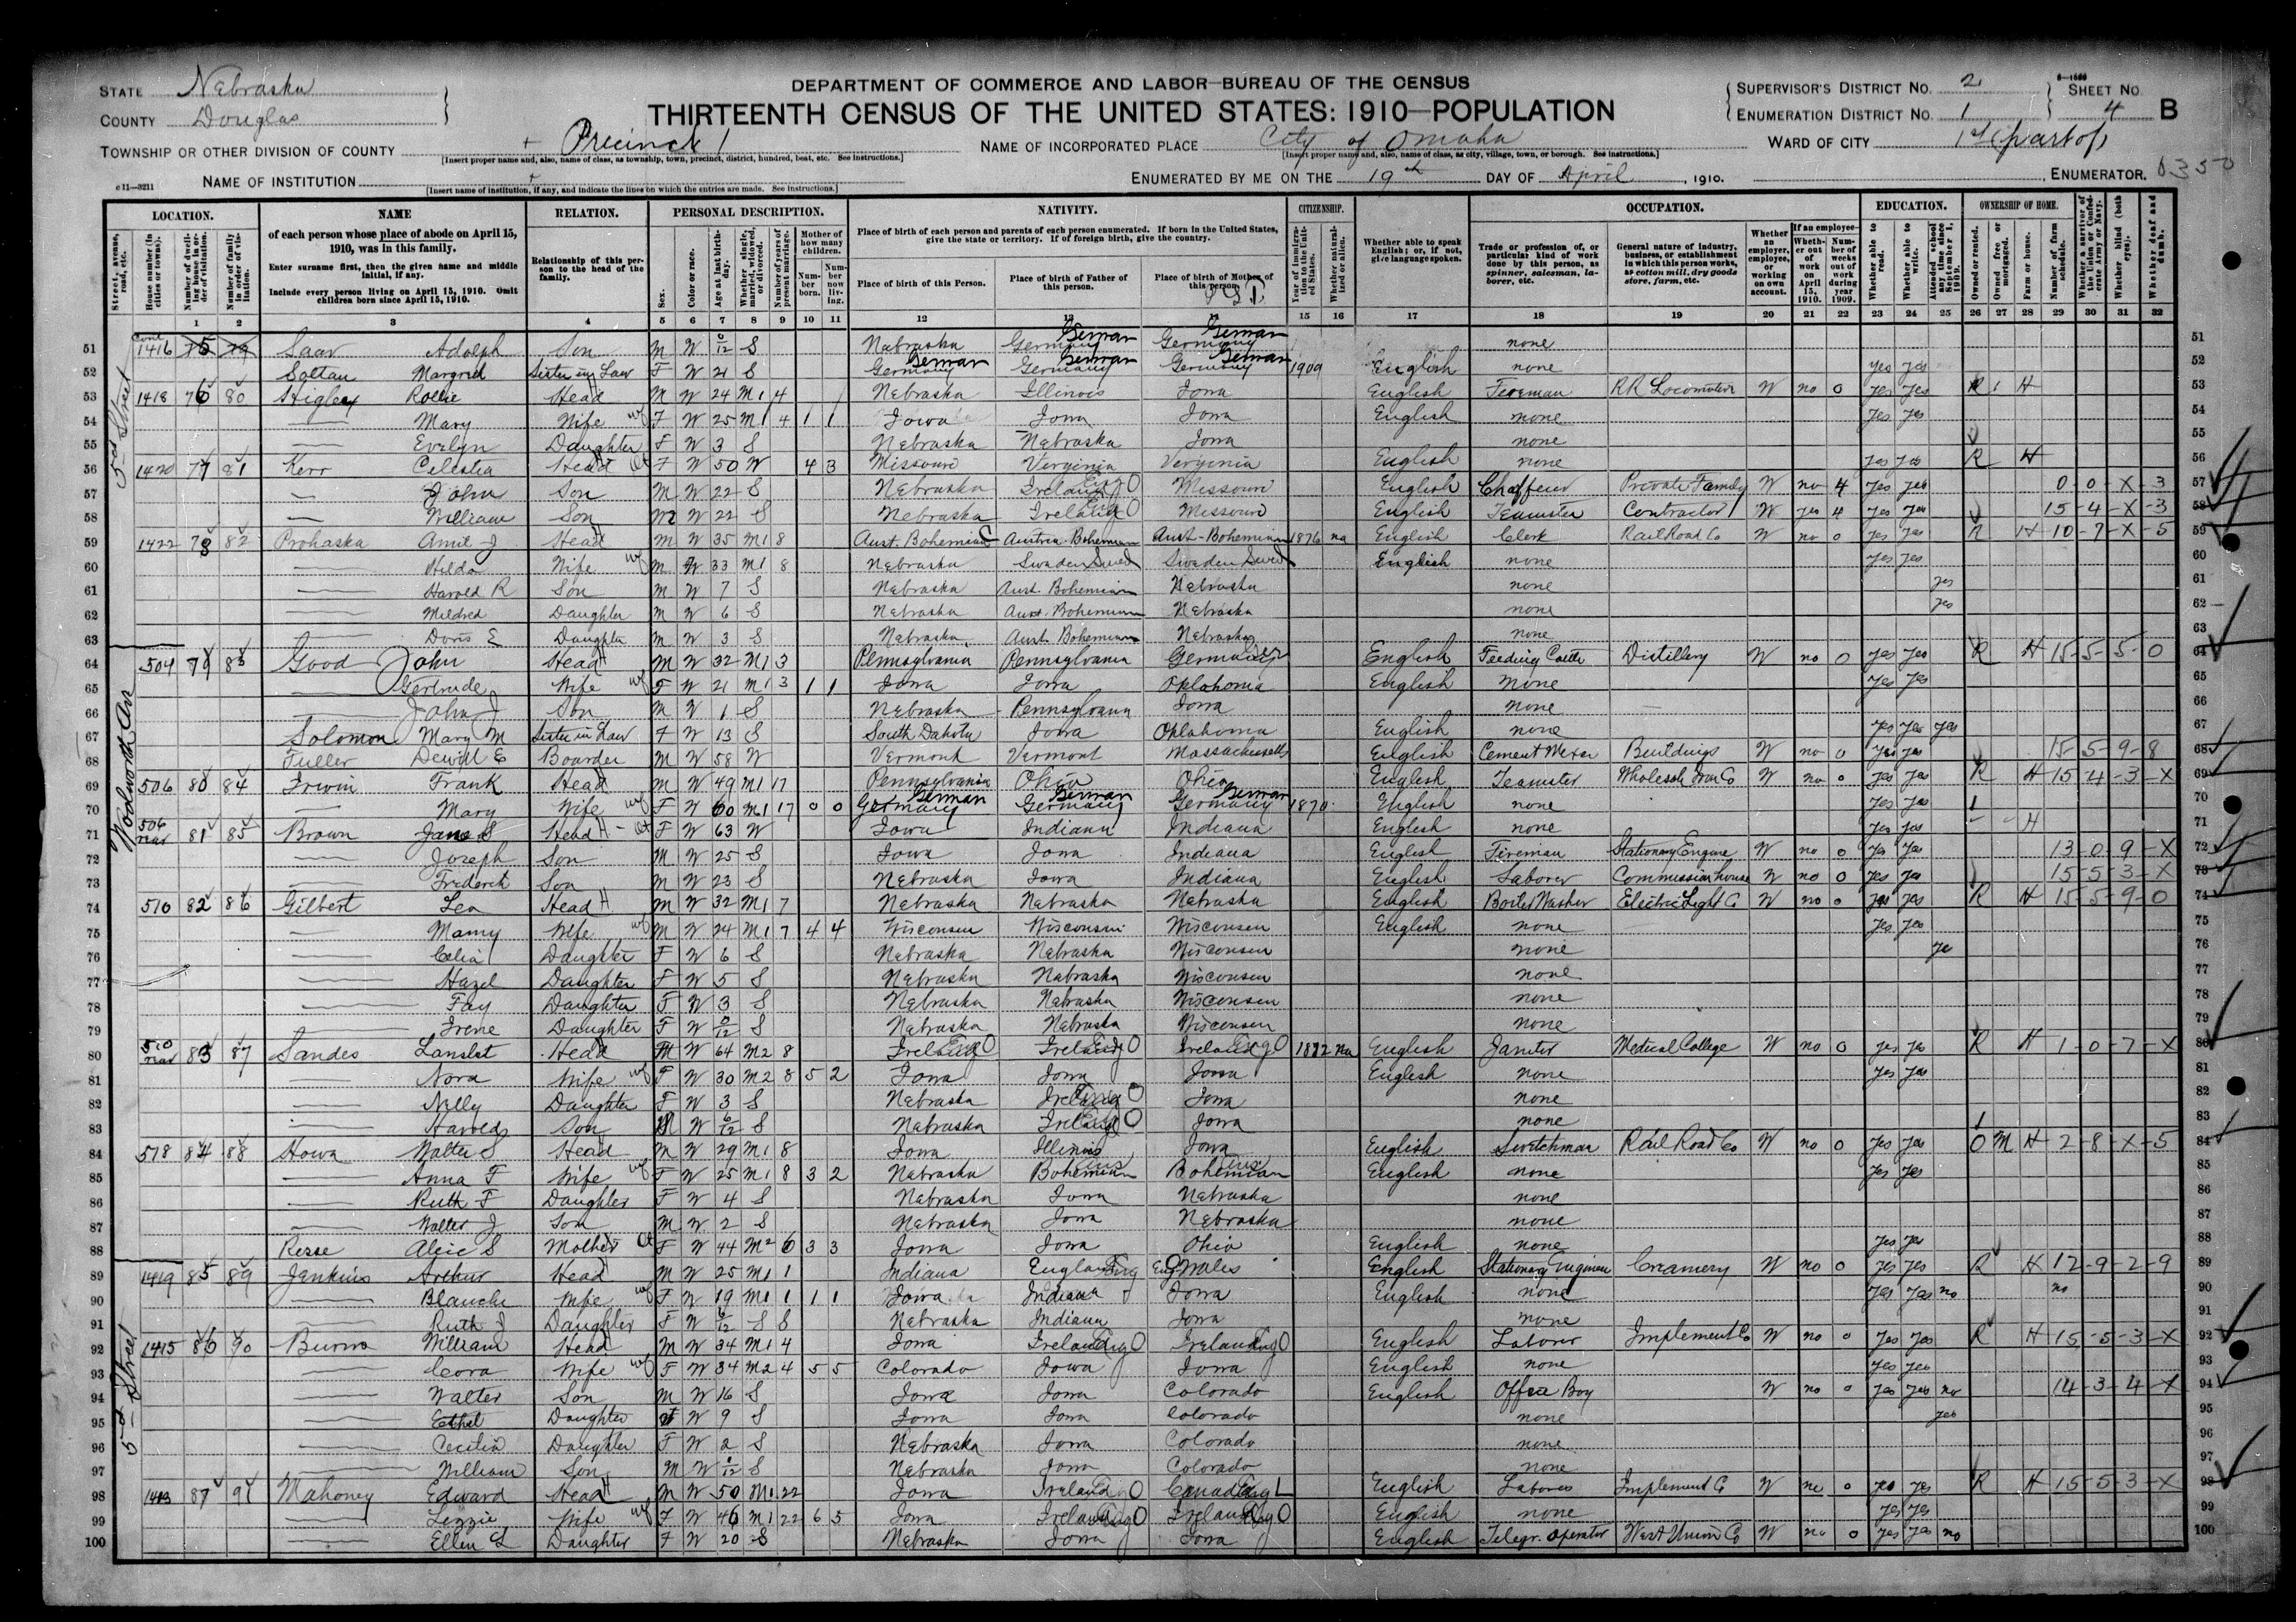 DEPARTMENT OF COMMERCE AND LABOR—BUREAU OF THE CENSUS
THIRTEENTH CENSUS OF THE UNITED STATES: 1910—POPULATION
STATE Nebraska
COUNTY Douglas
TOWNSHIP OR OTHER DIVISION OF COUNTY Precinct 1
[Insert proper name and, also, name of class, as township, town, precinct, district, hundred, beat, etc. See instructions.]
NAME OF INSTITUTION
[Insert name of institution, if any, and indicate the lines on which the entries are made. See instructions.]
NAME OF INCORPORATED PLACE City of Omaha
[Insert proper name and, also, name of class, as city, village, town, or borough. See instructions.]
ENUMERATED BY ME ON THE 19th DAY OF April, 1910.
SUPERVISOR'S DISTRICT NO. 2
ENUMERATION DISTRICT NO. 1
SHEET NO. 4 B
WARD OF CITY 1st (part of)
ENUMERATOR.
LOCATION. NAME RELATION. PERSONAL DESCRIPTION. NATIVITY. CITIZENSHIP. OCCUPATION. EDUCATION. OWNERSHIP OF HOME.
51 1416 Saar Adolph Son M W 0/12 S Nebraska Germany German Germany German none
52 Soltau Margrid Sister in Law F W 21 S Germany German Germany German Germany German 1909 English none yes yes
53 1418 76 80 Higley Rollie Head M W 24 M1 4 Nebraska Illinois Iowa English Fireman RR Locomotive W no 0 yes yes R H
54 Mary Wife F W 25 M1 4 1 1 Iowa Iowa Iowa English none yes yes
55 Evelyn Daughter F W 3 S Nebraska Nebraska Iowa none
56 1420 77 81 Kerr Celestia Head F W 50 W 4 3 Missouri Verginia Verginia English none yes yes R H
57 John Son M W 22 S Nebraska Ireland Eng O Missouri English Chaffeur Private Family W no 4 yes yes 0-0-X-3
58 William Son W 22 S Nebraska Ireland Eng O Missouri English Teamster Contractor W yes 4 yes yes 15-4-X-3
59 1422 78 82 Prohaska Amil J Head M W 35 M1 8 Aust. Bohemian Austria Bohemian Aust-Bohemian 1876 na English Clerk Rail Road Co W no 0 yes yes R H 10-7-X-5
60 Hilda Wife M W 33 M1 8 Nebraska Swaden Swed Swaden Swed English none yes yes
61 Harold R Son M W 7 S Nebraska Aust. Bohemian Nebraska none yes
62 Mildred Daughter M W 6 S Nebraska Aust. Bohemian Nebraska none yes
63 Doris E Daughter M W 3 S Nebraska Aust. Bohemian Nebraska none
64 504 79 83 Good John Head M W 32 M1 3 Pennsylvania Pennsylvania Germany English Feeding Cattle Distillery W no 0 yes yes R H 15-5-5-0
65 Gertrude Wife F W 21 M1 3 1 1 Iowa Iowa Oklahoma English None yes yes
66 John J Son M W 1 S Nebraska Pennsylvana Iowa None
67 Solomon Mary M Sister in Law F W 13 S South Dakota Iowa Oklahoma English none yes yes yes
68 Fuller Dewitt E Boarder M W 58 W Vermont Vermont Massachusetts English Cement Mixer Buildings W no 0 yes yes 15-5-9-8
69 506 80 84 Irwin Frank Head M W 49 M1 17 Pennsylvania Ohio Ohio English Teamster Wholesale Iron Co W no 0 yes yes R H 15-4-3-X
70 Mary Wife F W 60 M1 17 0 0 Germany German Germany German Germany German 1870 English none yes yes
71 506 rear 81 85 Brown Jane S Head F W 63 W Iowa Indiana Indiana English none yes yes H
72 Joseph Son M W 25 S Iowa Iowa Indiana English Fireman Stationary Engine W no 0 yes yes 13-0-9-X
73 Frederick Son M W 23 S Nebraska Iowa Indiana English Laborer Commission house W no 0 yes yes 15-5-3-X
74 510 82 86 Gilbert Leo Head M W 32 M1 7 Nebraska Nebraska Nebraska English Boiler Washer Electric Light C W no 0 yes yes R H 15-5-9-0
75 Mamy Wife M W 24 M1 7 4 4 Wisconsin Wisconsin Wisconsin English none yes yes
76 Celia Daughter F W 6 S Nebraska Nebraska Wisconsin none ye
77 Hazel Daughter F W 5 S Nebraska Nabraska Wisconsin none
78 Fay Daughter F W 3 S Nebraska Nebraska Wisconsin none
79 Irene Daughter F W 0/12 S Nebraska Nebraska Wisconsin none
80 510 rear 83 87 Sandes Lanslet Head M W 64 M2 8 Ireland Eng O Ireland Eng O Ireland Eng O 1872 na English Janitor Medical College W no 0 yes yes R H 1-0-7-X
81 Nora Wife F W 30 M2 8 5 2 Iowa Iowa Iowa English none yes yes
82 Nelly Daughter F W 3 S Nebraska Ireland Eng O Iowa none
83 Harold Son M W 6/12 S Nebraska Ireland Eng O Iowa none
84 518 84 88 Howa Walter S Head M W 29 M1 8 Iowa Illinois Iowa English Switchman Rail Road Co W no 0 yes yes O M H 2-8-X-5
85 Anna F Wife F W 25 M1 8 3 2 Nebraska Bohemian Bohemian English none yes yes
86 Ruth F Daughter F W 4 S Nebraska Iowa Nebraska none
87 Walter J Son M W 2 S Nebraska Iowa Nebraska none
88 Resse Alcie S Mother F W 44 M2 6 3 3 Iowa Iowa Ohio English none yes yes
89 1419 85 89 Jenkins Arthur Head M W 25 M1 1 Indiana England Eng Eng Wales English Stationary Enginier Creamery W no 0 yes yes R H 12-9-2-9
90 Blanche Wife F W 19 M1 1 1 1 Iowa Indiana Iowa English none yes yes no no
91 Ruth J Daughter F W 6/12 S S Nebraska Indiana Iowa none
92 1415 86 90 Burns William Head M W 34 M1 4 Iowa Ireland Eng O Ireland Eng O English Laborer Implement Co W no 0 yes yes R H 15-5-3-X
93 Cora Wife F W 34 M2 4 5 5 Colorado Iowa Iowa English none yes yes
94 Walter Son M W 16 S Iowa Iowa Colorado English Office Boy W no 0 yes yes no 14-3-4-X
95 Ethel Daughter F W 9 S Iowa Iowa Colorado none yes
96 Cecilia Daughter F W 2 S Nebraska Iowa Colorado none
97 William Son M W /12 S Nebraska Iowa Colorado none
98 1413 87 91 Mahoney Edward Head M W 50 M1 22 Iowa Ireland Eng O Canada Eng L English Laborer Implement C W no 0 yes yes R H 15-5-3-X
99 Lizzie Wife F W 46 M1 22 6 5 Iowa Ireland Eng O Ireland Eng O English none yes yes
100 Ellen L Daughter F W 20 S Nebraska Iowa Iowa English Telegr. operator West Union Co W no 0 yes yes no